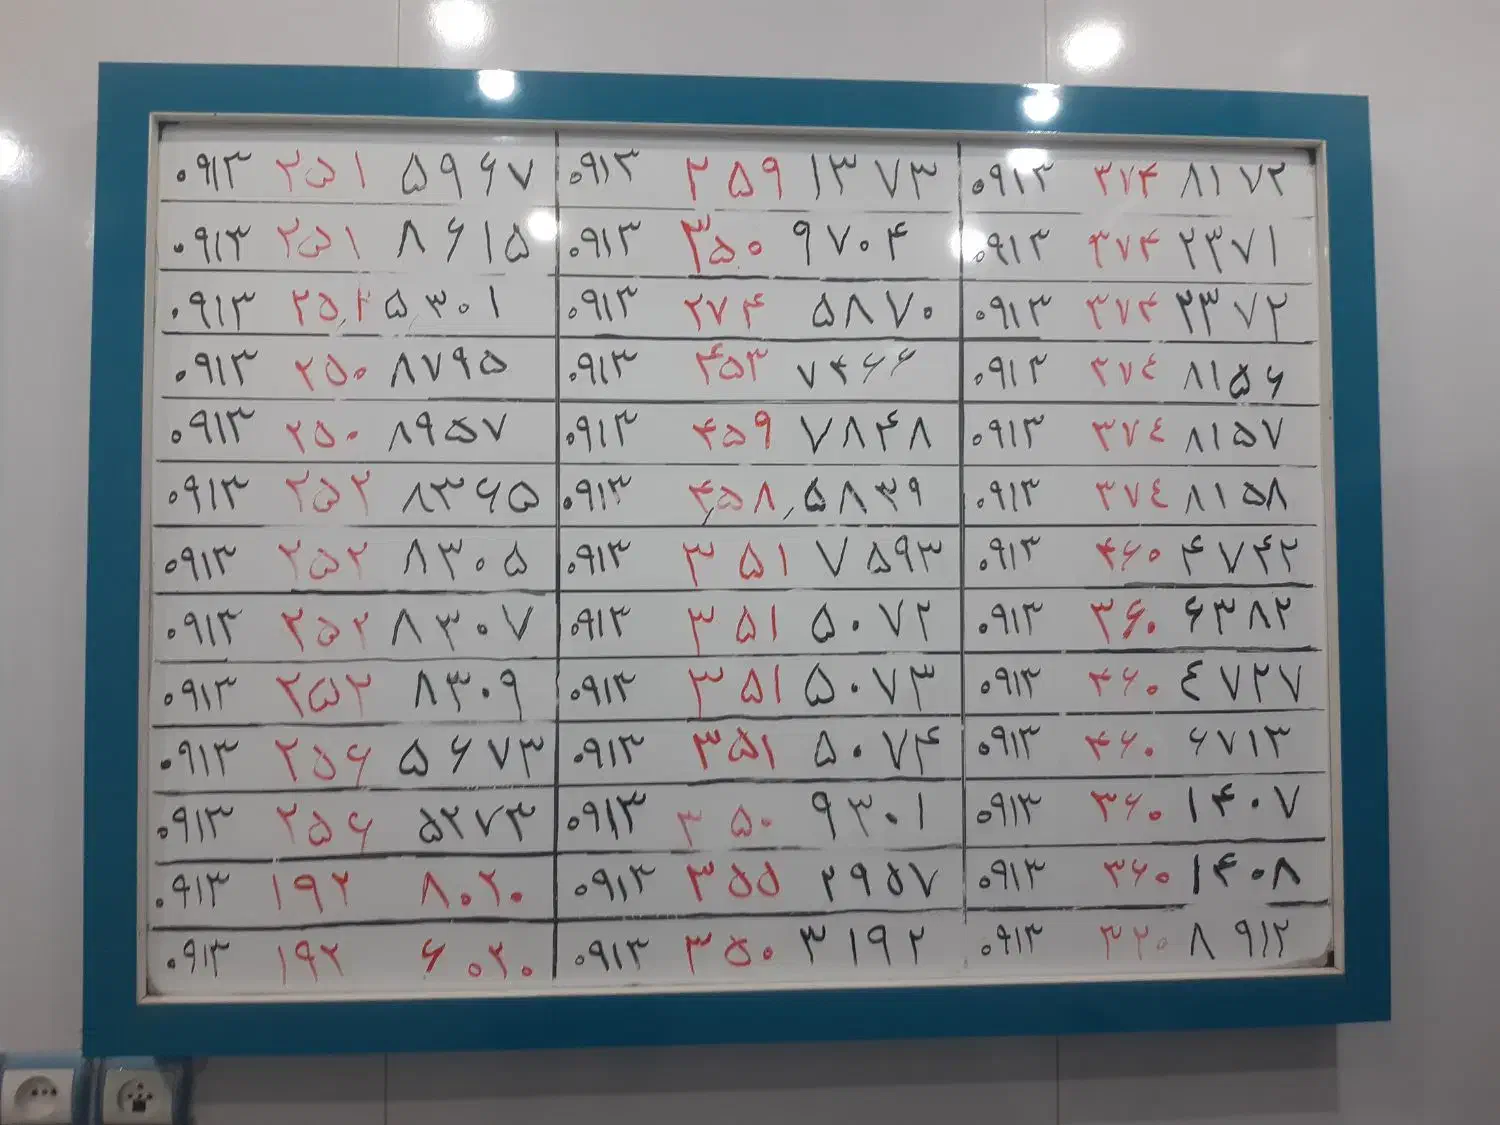 ۰۹۱۳ ۲۵۱ ۵۹۶۷
۰۹۱۳ ۲۵۱ ۸۶۱۵
۰۹۱۳ ۲۵۱ ۵۳۰۱
۰۹۱۳ ۲۵۰ ۸۷۹۵
۰۹۱۳ ۲۵۰ ۸۹۵۷
۰۹۱۳ ۲۵۲ ۸۳۶۵
۰۹۱۳ ۲۵۲ ۸۳۰۵
۰۹۱۳ ۲۵۲ ۸۳۰۷
۰۹۱۳ ۲۵۲ ۸۳۰۹
۰۹۱۳ ۲۵۶ ۵۶۷۳
۰۹۱۳ ۲۵۶ ۵۲۷۳
۰۹۱۳ ۱۹۲ ۸۰۲۰
۰۹۱۳ ۱۹۲ ۶۰۲۰
۰۹۱۳ ۲۵۹ ۱۳۷۳
۰۹۱۳ ۳۵۰ ۹۷۰۴
۰۹۱۳ ۲۷۴ ۵۸۷۰
۰۹۱۳ ۴۵۳ ۷۴۶۶
۰۹۱۳ ۴۵۹ ۷۸۴۸
۰۹۱۳ ۴۵۸ ۵۸۳۹
۰۹۱۳ ۳۵۱ ۷۵۹۳
۰۹۱۳ ۳۵۱ ۵۰۷۲
۰۹۱۳ ۳۵۱ ۵۰۷۳
۰۹۱۳ ۳۵۱ ۵۰۷۴
۰۹۱۳ ۳۵۰ ۹۳۰۱
۰۹۱۳ ۳۵۵ ۲۹۵۷
۰۹۱۳ ۳۵۰ ۳۱۹۲
۰۹۱۳ ۳۷۴ ۸۱۷۲
۰۹۱۳ ۳۷۴ ۲۳۷۱
۰۹۱۳ ۳۷۴ ۲۳۷۲
۰۹۱۳ ۳۷۴ ۸۱۵۶
۰۹۱۳ ۳۷۴ ۸۱۵۷
۰۹۱۳ ۳۷۴ ۸۱۵۸
۰۹۱۳ ۴۶۰ ۴۷۴۲
۰۹۱۳ ۳۶۰ ۶۳۸۲
۰۹۱۳ ۴۶۰ ۴۷۲۷
۰۹۱۳ ۴۶۰ ۶۷۱۳
۰۹۱۳ ۳۶۰ ۱۴۰۷
۰۹۱۳ ۳۶۰ ۱۴۰۸
۰۹۱۳ ۳۲۰ ۸۹۱۲